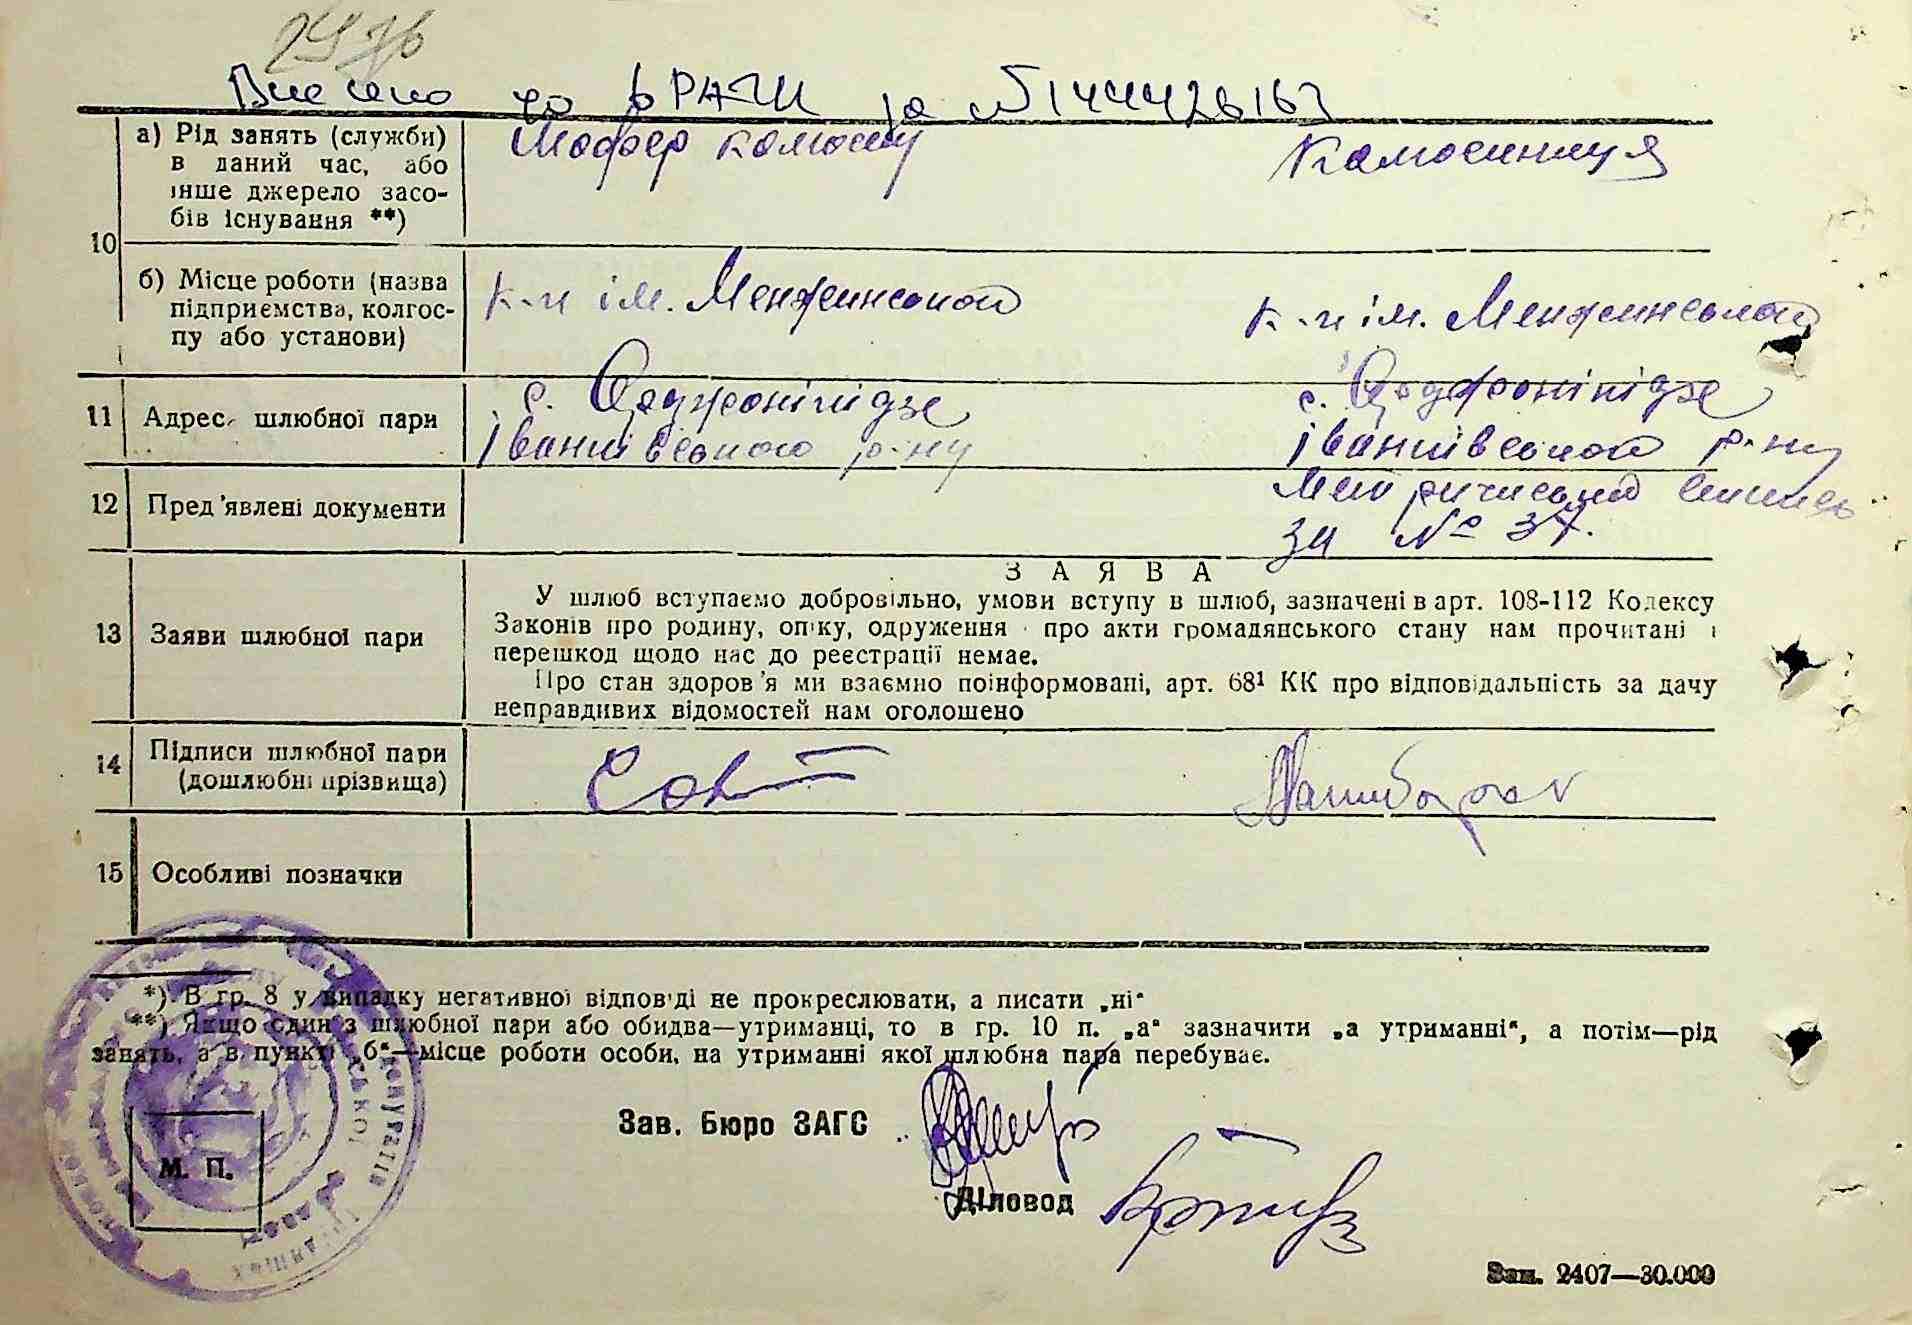 Внесено до ДРАЦС за № 144426163
10
а) Рід занять (служби) в даний час, або інше джерело засобів існування **)
Шофер колгоспу
Колгоспниця
б) Місце роботи (назва підприємства, колгоспу або установи)
к-п ім. Менжинського
к-п ім. Менжинського
11 Адрес шлюбної пари
с. Орджонікідзе
Іванівського р-ну
с. Орджонікідзе
Іванівського р-ну
12 Пред'явлені документи
за № 37.
З А Я В А
13 Заяви шлюбної пари
У шлюб вступаємо добровільно, умови вступу в шлюб, зазначені в арт. 108-112 Кодексу
Законів про родину, опіку, одруження про акти громадянського стану нам прочитані і
перешкод щодо нас до реєстрації немає.
Про стан здоров'я ми взаємно поінформовані, арт. 68¹ КК про відповідальність за дачу
неправдивих відомостей нам оголошено
14 Підписи шлюбної пари
(дошлюбні прізвища)
15 Особливі позначки
*) В гр. 8 у випадку негативної відповіді не прокреслювати, а писати „ні“
**) Якщо один з шлюбної пари або обидва—утриманці, то в гр. 10 п. „а“ зазначити „а утриманні“, а потім—рід
занять, а в пункті „б“—місце роботи особи, на утриманні якої шлюбна пара перебуває.
Зав. Бюро ЗАГС
М. П.
Діловод
Зам. 2407—30.000